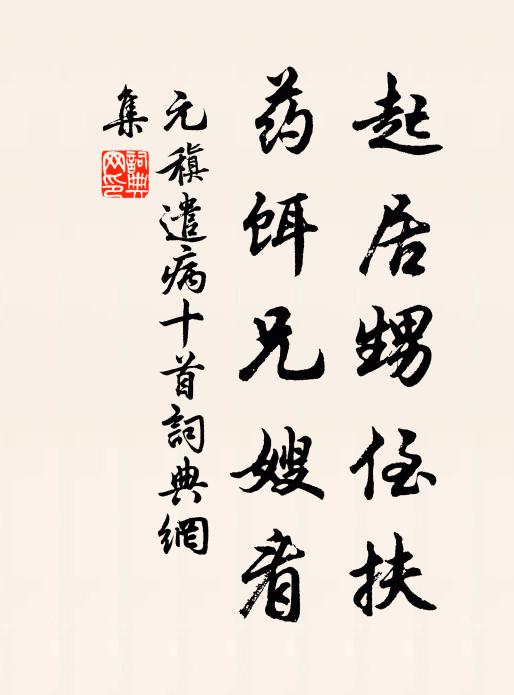 起居甥侄扶
药饵兄嫂看
元稹遣病十首詞典網
集
詞典
网印